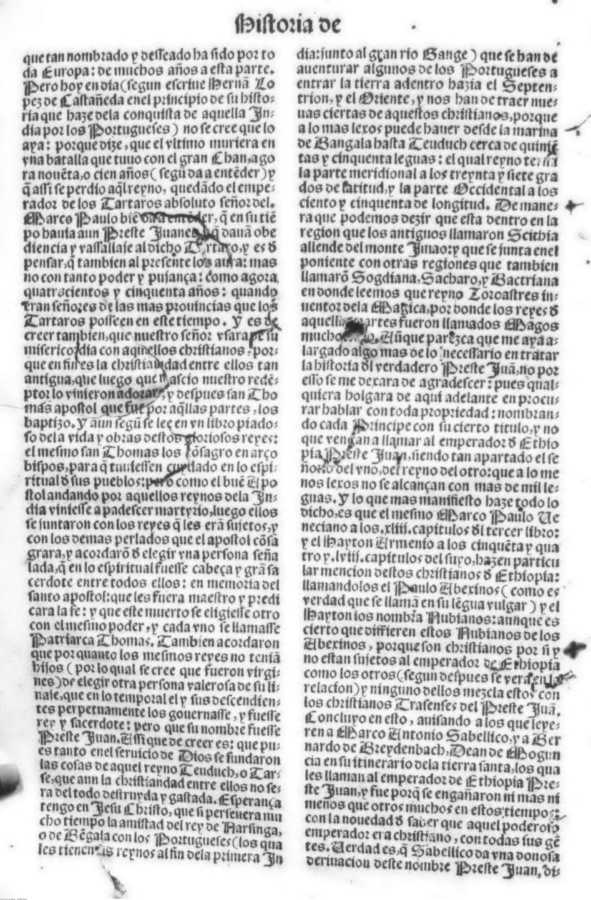 Historia de
que tan nombrado y desseado ha sido por to
da Europa: de muchos años a esta parte.
Pero hoy en dia (segun escriue Hernã Lo
pez de Castañeda enel principio de su histo-
ria que haze dela conquista de aquella In-
dia por los Portugueses) no se cree que lo
aya: porque dize, que el vltimo muriera en
vna batalla que tuuo con el gran Chan, ago
ra nouẽta, o cien años (segũ da a entẽder) y
q̃ assi se perdio aq̃l reyno, quedãdo el empe-
rador de los Tartaros absoluto señor del.
Marco Paulo biẽ da a entẽder, q̃ en su tiẽ
po hauia aun Preste Juanes, q̃ dauã obe
diencia y vassallaje al dicho Tartaro, y es d
pensar, q̃ tambien al presente los aura: mas
no con tanto poder y pujança: como agora
quatrocientos y cinquenta años: quando
eran señores de las mas prouincias que los
Tartaros posseen en este tiempo. Y es de
creer tambien, que nuestro señor vsara de su
misericordia con aquellos christianos, por-
que en fin es la christiandad entre ellos tan
antigua, que luego que nascio nuestro redẽ-
ptor lo vinieron adorar, y despues san Tho
mas apostol que fue por aq̃llas partes, los
baptizo. Y aun segũ se lee en vn libro piado-
so dela vida y obras destos gloriosos reyes:
el mesmo san Thomas los cõsagro en arço
bispos, para q̃ tuuiessen cuydado en lo espi-
ritual d sus pueblos: pero como el buẽ A po
stol andando por aquellos reynos dela In-
dia viniesse a padescer martyrio, luego ellos
se juntaron con los reyes q̃ les erã sujetos, y
con los demas perlados que el apostol cõsa
grara, y acordarõ d elegir vna persona seña
lada, q̃ en lo espiritual fuesse cabeça y grã sa
cerdote entre todos ellos: en memoria del
santo apostol: que les fuera maestro y predi
cara la fe: y que este muerto se eligiesse otro
con el mesmo poder, y cada vno se llamasse
Patriarca Thomas. Tambien acordaron
que por quanto los mesmos reyes no teniã
hijos (por lo qual se cree que fueron virgi-
nes) de elegir otra persona valerosa de su li-
naje, que en lo temporal el y sus descendien-
tes perpetuamente los gouernasse, y fuesse
rey y sacerdote: pero que su nombre fuesse
Preste Juan. Assi que de creer es: que pu-
es tanto enel seruicio de Dios se fundaron
las cosas de aquel reyno Teuduch, o Tar-
se, que aun la christiandad entre ellos no se-
ra del todo destruyda y gastada. Esperança
tengo en Jesu Christo, que si perseuera mu
cho tiempo la amistad del rey de Narsinga,
o de Bẽgala con los Portugueses (los qua
les tienen sus reynos al fin dela primera In
dia: junto al gran rio Gange) que se han de
auenturar algunos de los Portugueses a
entrar la tierra adentro hazia el Septen-
trion, y el Oriente, y nos han de traer nue-
uas ciertas de aquestos christianos, porque
a lo mas lexos puede hauer desde la marina
de Bangala hasta Teuduch cerca de quiniẽ
tas y cinquenta leguas: el qual reyno terna
la parte meridional a los treynta y siete gra
dos de latitud, y la parte Occidental a los
ciento y cinquenta de longitud. De mane-
ra que podemos dezir que esta dentro en la
region que los antiguos llamaron Scithia
allende del monte Jmao: y que se junta enel
poniente con otras regiones que tambien
llamarõ Sogdiana, Sacharo, y Bactriana
en donde leemos que reyno Zoroastres in-
uentor dela Magica, por donde los reyes d
aquellas partes fueron llamados Magos
mucho Aũque parezca que me aya a-
largado algo mas de lo necessario en tratar
la historia dl verdadero Preste Juã, no por
esso se me dexara de agradescer: pues qual-
quiera holgara de aqui adelante en procu-
rar hablar con toda propriedad: nombran-
do cada Principe con su cierto titulo, y no
que vengan a llamar al emperador d Ethio
pia Preste Juan, siendo tan apartado el se
ñorio del vno, del reyno del otro: que a lo me
nos lexos no se alcançan con mas de mil le-
guas. Y lo que mas manifiesto haze todo lo
dicho, es que el mesmo Marco Paulo Ve
neciano a los .xliii. capitulos dl tercer libro:
y el Hayton Armenio a los cinquẽta y qua
tro y .lviii. capitulos del suyo, hazen particu
lar mencion destos christianos d Ethiopia:
llamandolos el Paulo Abexinos (como es
verdad que se llamã en su lẽgua vulgar) y el
Hayton los nombra Nubianos: aunque es
cierto que diffieren estos Nubianos de los
Abexinos, porque son christianos por si y
no estan sujetos al emperador de Ethiopia
como los otros (segun despues se vera en la
relacion) y ninguno dellos mezcla estos con
los christianos Trasenses del Preste Juã.
Concluyo en esto, auisando a los que leye-
ren a Marco Antonio Sabellico, y a Ber
nardo de Breydenbach, Dean de Mogun
cia en su itinerario dela tierra santa, los qua
les llaman al emperador de Ethiopia Pre-
ste Juan, y fue porq̃ se engañaron ni mas ni
menos que otros muchos en estos tiempos:
con la nouedad d saber que aquel poderoso
emperador era christiano, con todas sus gẽ
tes. Verdad es, q̃ Sabellico da vna donosa
deriuacion deste nombre Preste Juan, di-